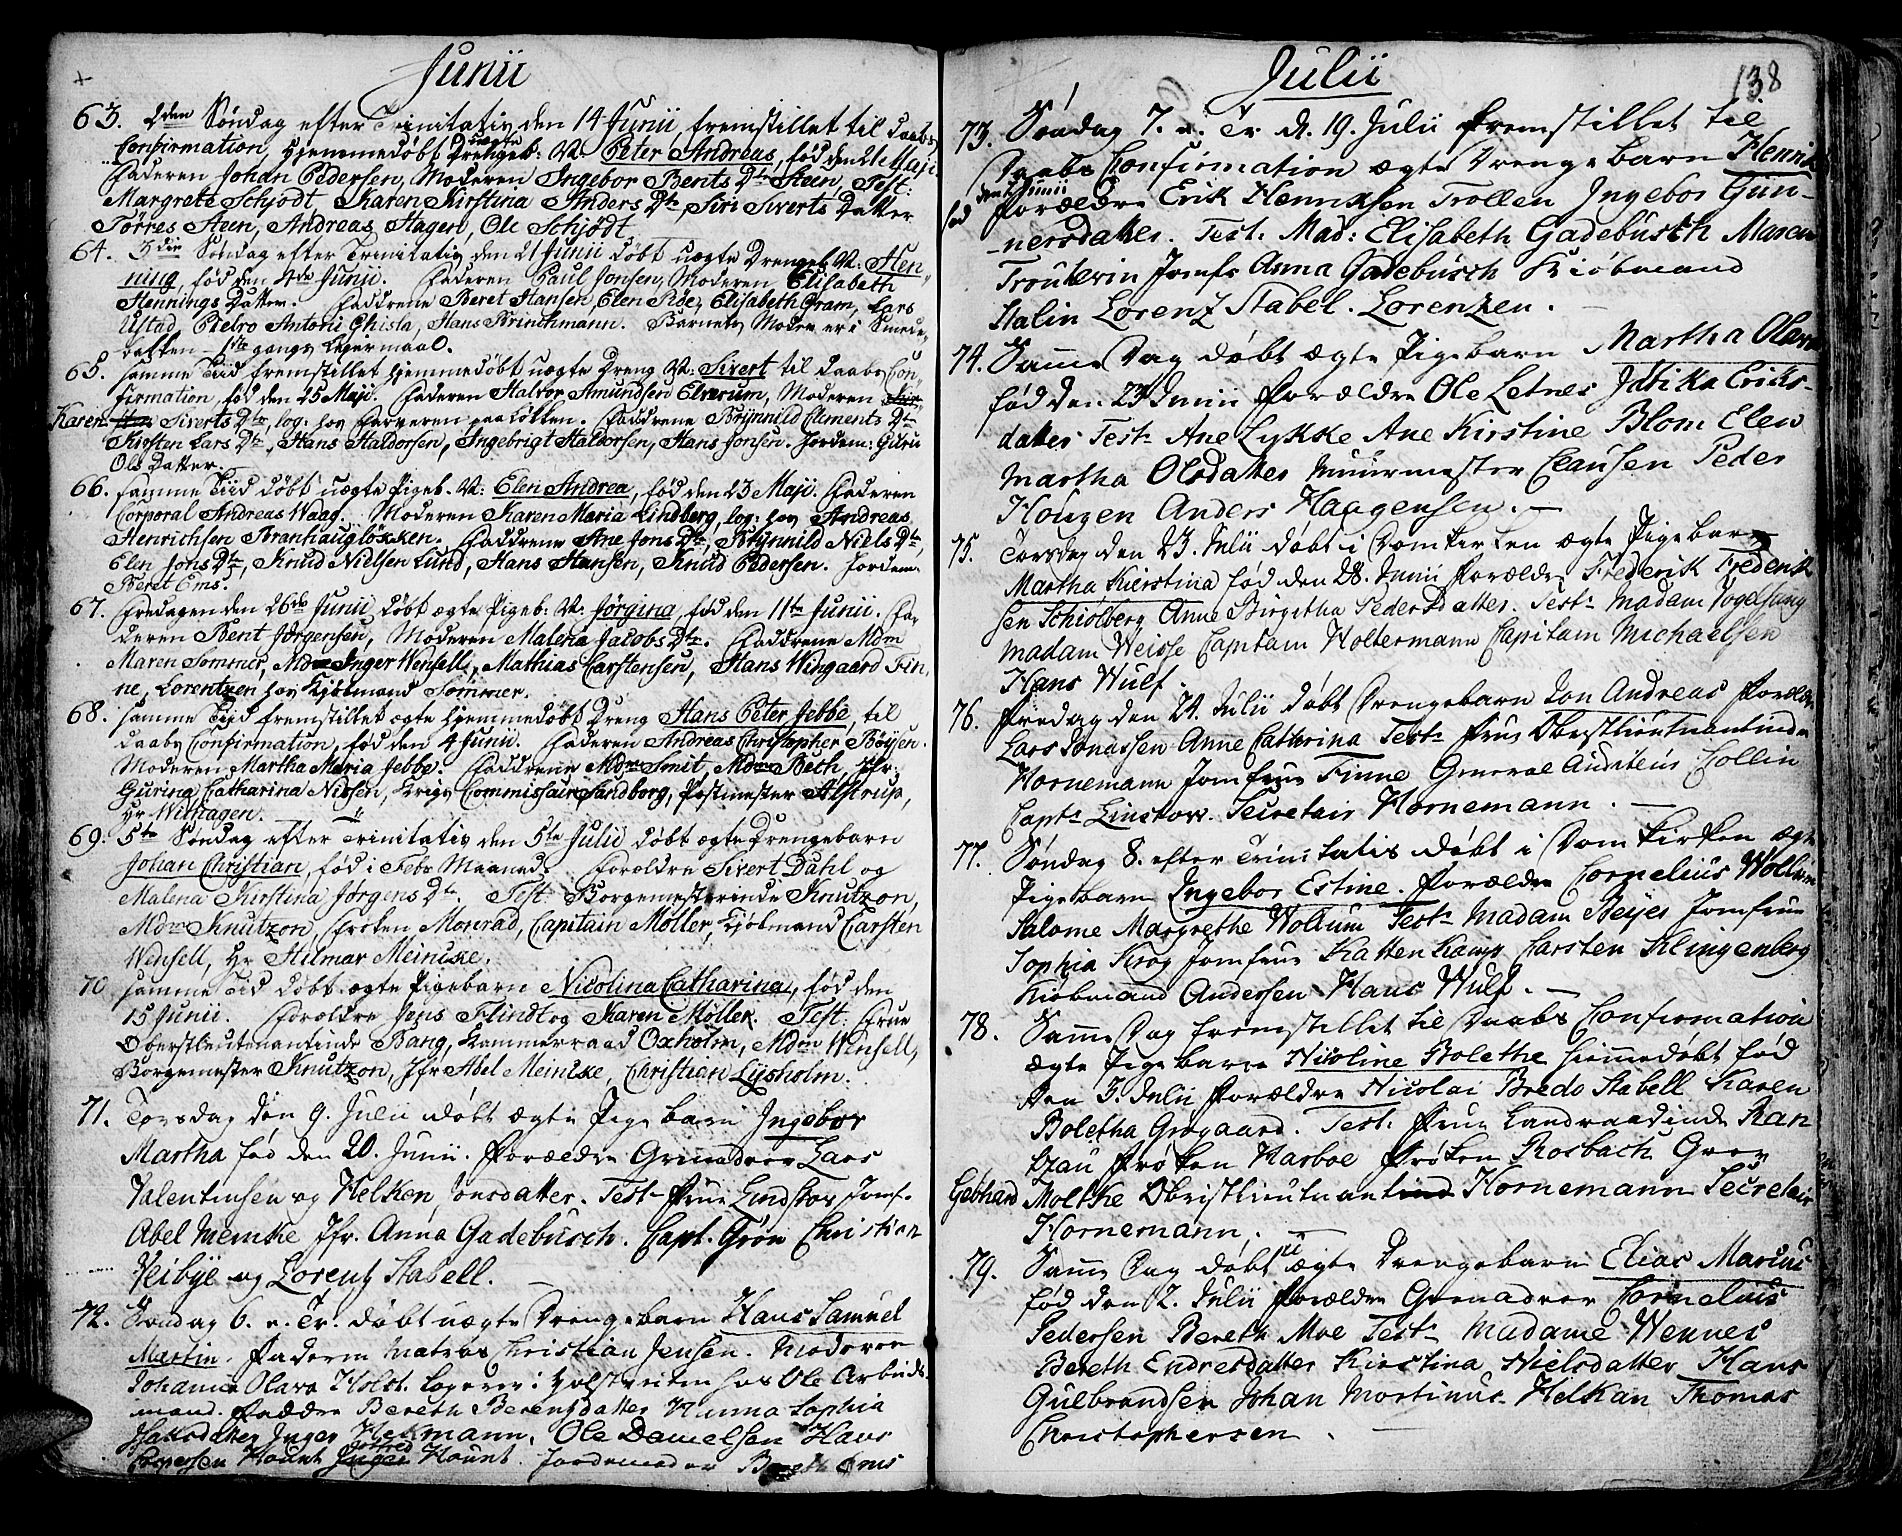 Junii
63. 2den Søndag efter Trinitatis den 14 Junii, fremstillet til Daabs
Confirmation, Hjemmedøbt uægte Drengeb: N: Peter Andreas, fød den 21 Maji.
Faderen Johan Pedersen, Moderen Ingebor Bents Dtr Steen, Test:
Margrete Schjødt, Karen Kirstina Anders Dtr, Siri Siverts Datter
Törres Steen, Andreas Hagen, Ole Schjødt.
64. 3die Søndag efter Trinitatis den 21 Junii døbt uægte Drengeb. N: Hen-
ning, fød den 4de Junii. Faderen Paul Jonsen, Moderen Elisabeth
Hennings Datter. Fadderne Beret Hansen, Elen Side, Elisabeth Gram, Lars
Ustad, Pietro Antoni Ghisla, Hans Brinchmann. Barnets Moder er i Smede-
bakken 1ste gangs Lejermaal.
65. Samme Tiid fremstillet hjemmedøbt uægte Dreng N: Sivert til Daabs Con-
firmation, fød den 25 Maji. Faderen Halvor Amundsen Elverum, Moderen
Karen Siverts Dtr, log: hos Farveren paa Løkken. Fadderne Brynnild Clements Dtr
Kirsten Lars Dtr, Hans Haldorsen, Ingebrigt Haldorsen, Hans Jonsen. Jordem: Guru
Ols Datter.
66. Samme Tiid døbt uægte Pigeb. N: Elen Andrea, fød den 23 Maji. Faderen
Corporal Andreas Waag. Moderen Karen Maria Lindberg, log: hos Andreas
Henrichsen Branhaugløkken. Fadderne Ane Jons Dtr, Brynnild Niels Dtr
Elen Jons Dtr, Knud Nielsen Lund, Hans Hansen, Knud Pedersen. Jordem:
Beret Ems.
67. Fredagen den 26de Junii, døbt ægte Pigeb: N: Jørgina, fød den 11te Junii. Fa-
deren Bent Jørgensen, Moderen Malena Jacobs Dtr. Fadderne Mdm
Maren Sommer, Mdm Inger Wensell, Mathias Carstensen, Hans Wingaard Fin-
ne, Lorentzen hos Kjøbmand Sommer.
68. Samme Tiid fremstillet ægte Hjemmedøbt Dreng Hans Peter Jebbe, til
Daabs Confirmation, fød den 4 Junii. Faderen Andreas Christopher Böysen.
Moderen Martha Maria Jebbe. Fadderne Mdm Smit, Mdm Beth, Jfr:
Guring Catharina Nissen, Krigs Commissair Sandborg, Postmester Alstrup,
Hr Withagen.
69. 5te Søndag efter Trinitatis den 5te Julii døbt ægte Drengebarn
Johan Christian, fød i Febr Maaned. Foreldre Sivert Dahl og
Malena Kirstina Jørgens Dtr. Test: Borgemesterinde Knutzon,
Mdm Knutzon, Frøken Monrad, Capitain Möller, Kjøbmand Carsten
Wensell, Hr Hilmar Meincke.
70 Samme Tid døbt ægte Pigebarn Nicolina Catharina, fød den
15 Junii. Foreldre Jens Flindt og Karen Möller. Test: Frue
Oberstleutenantinde Bang, Kammerraad Oxholm, Mdm Wensell,
Borgemester Knutzon, Jfr Abel Meincke, Christian Lysholm.
71. Torsdag den 9. Julii døbt ægte Pige barn Ingebor
Martha fød den 20. Junii. Forældre Grenadeer Lars
Valentinsen og Helken Jonsdatter. Test- Frue Lindstov Jomf.
Abel Meincke Jfr. Anna Gadebusch. Capt. Grøn Christian
Veibye og Lorentz Stabell.
72. Søndag 6. e. Tr. døbt uægte Drengebarn Hans Samuel
Martin. Faderen Matros Christian Jensen. Moderen
Johanna Olava Holst. Logerer i Holsveiten hos Ole Arbeids-
mand. Faddre Bereth Berensdatter Hanna Sophia
Jnger Hekmann, Ole Danielsen Hans
Hount Hount. Jordemoder Bereth Ems
Julii
138
73. Søndag 7. e. Tr d. 19. Julii fremstillet til
Daabs Confirmation ægte Drengebarn Henrik
fød
Forældre Erik Henriksen Trollen Ingebor Gun-
nersdatter. Test: Mad: Elisabeth Gadebusch Maren
Jomfr Anna Gadebusch Kiöbmand
Stalin Lorenz Stabel. Lorenzen.
74. Samme Dag døbt ægte Pigebarn Martha Olava
fød den 23 Junii Forældre Ole Letnes Erics-
datter Test- Ane Lykke Ane Kirstine Blom Elen
Martha Olsdatter Muurmester Clausen Peder
Houzen Anders Haagensen.
75. Torsdag den 23. Julii døbt i Domkirken ægte Pigebarn
Martha Kierstina fød den 28. Junii Forældre Frederik Frederik
sen Schiolberg Anne Birgitha Pedersdatter. Test- Madam Vogelsang
Madam Weisse Capitain Woltermann Capitain Michaelsen
Hans Wulf.
76. Fredag den 24. Julii døbt Drengebarn Jon Andreas Forældre
Lars Jonassen Anne Cathrina Test- Frue Obristlieutnantinde
Hornemann Jomfrue Finne General Auditeur Collin
Capt- Linstow. Secretair Hornemann.
77. Søndag 8. efter Trinitatis døbt i Domkirken ægte
Pigebarn Ingebor Estine. Forældre Cornelius Wollum
Salome Margrethe Wollum Test- Madam Beyer Jomfrue
Sophia Krog Jomfrue Kattenkamp Carsten Klingenberg
Kiøbmand Andersen Hans Wulf.
78. Samme Dag fremstillet til Daabs Confirmation
ægte Pigebarn Nicoline Bolethe hiemmedøbt fød
den 3. Julii Forældre Nicolai Bredo Stabell Karen
Boletha Grøgaard. Test. Frue Landraadinde Ran
tzau Frøken Harboe Frøken Rosbach Grev
Gebhard Molthe Obristlieutnant Hornemann Secretair
Hornemann.
79. Samme Dag døbt ægte Drengebarn Elias Marius
fød den 2. Julii Forældre Grenadeer Cornelius
Pedersen Bereth Moe Test- Madame Wennes
Bereth Endresdatter Kirstina Nielsdatter Hans
Gulbrandsen Johan Mortinus Helkan Thomas
Christophersen.